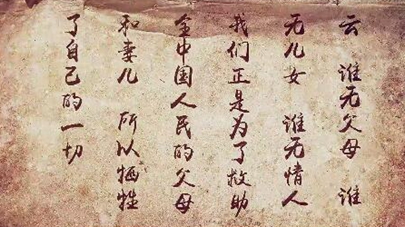 云 谁无父母 谁
无儿女 谁无情人
我们正是为了救助
全中国人民的父母
和妻儿 所以牺牲
了自己的一切